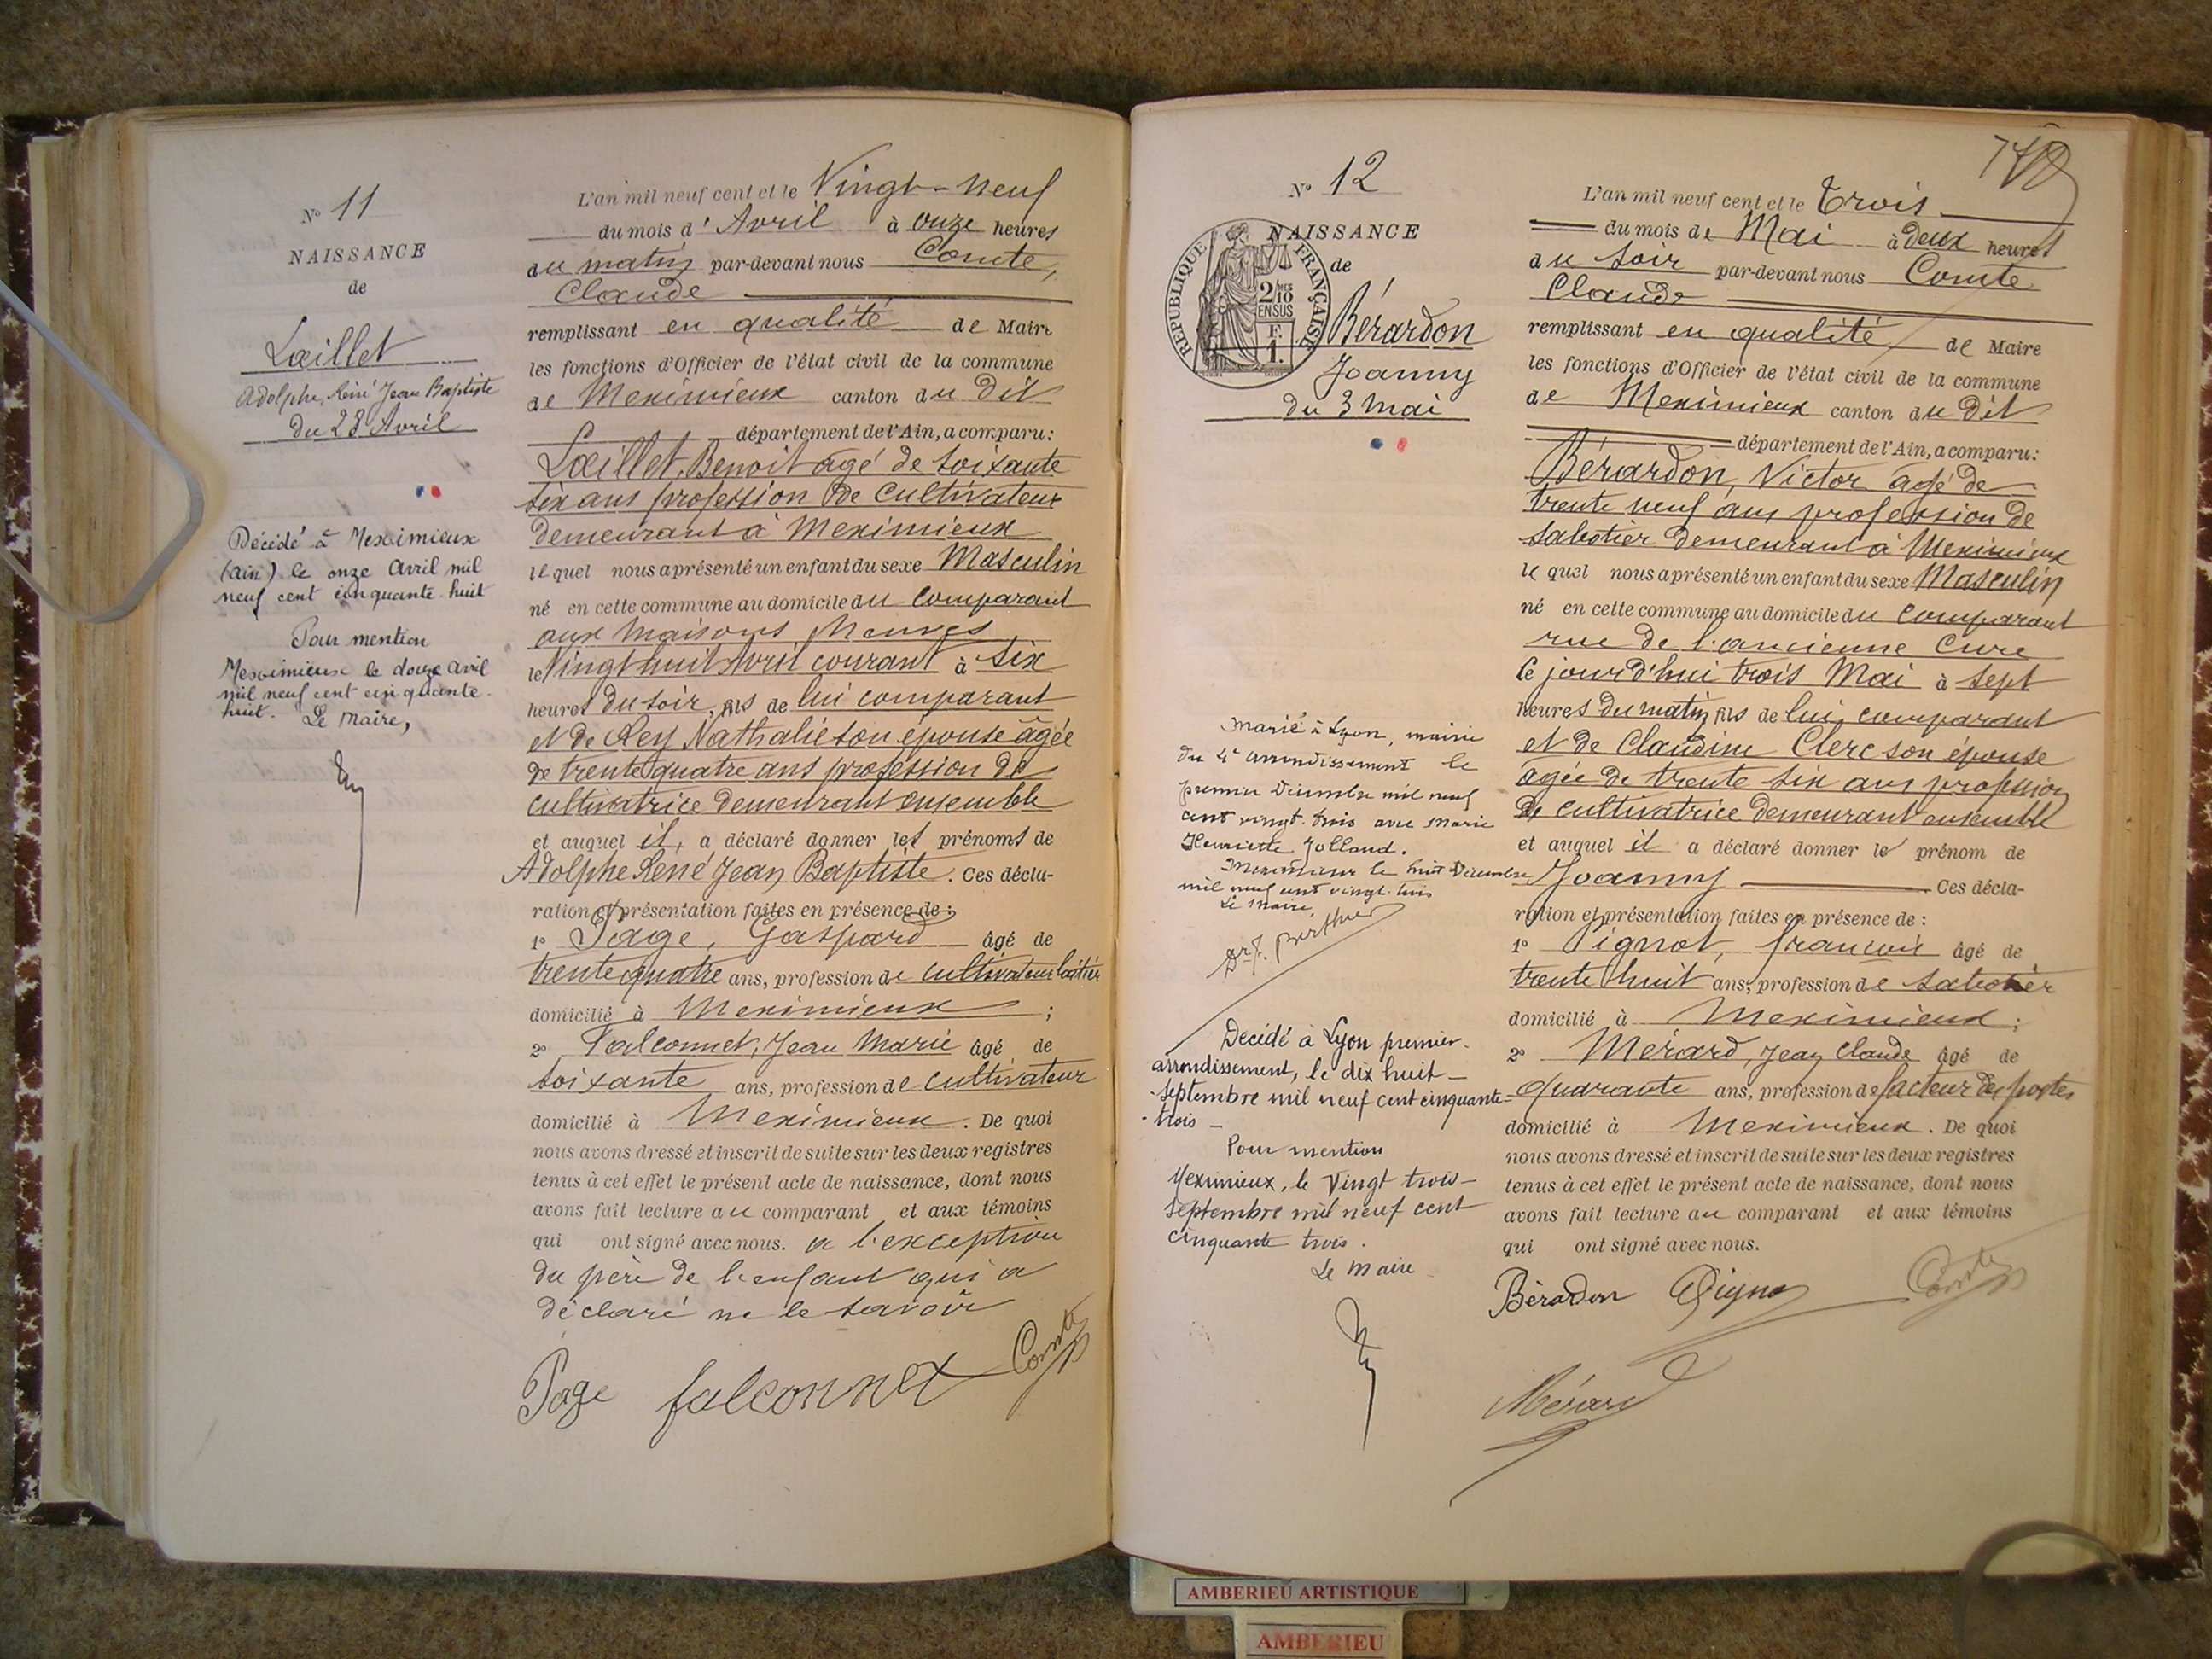 N° 11
NAISSANCE
de
Lœillet
Adolphe, René Jean Baptiste
du 28 Avril
Décédé à Meximieux
(ain) le onze avril mil
neuf cent cinquante huit
Pour mention
Meximieux le douze avril
mil neuf cent cinquante-
huit. Le Maire,
L'an mil neuf cent et le Vingt-neuf
du mois d'Avril à onze heures
du matin par-devant nous Comte,
Claude
remplissant en qualité de Maire
les fonctions d'Officier de l'état civil de la commune
de Meximieux canton du dit
département de l'Ain, a comparu:
Lœillet, Benoit âgé de soixante
six ans profession de Cultivateur
demeurant à Meximieux
lequel nous a présenté un enfant du sexe Masculin
né en cette commune au domicile du comparant
aux Maisons Neuves
le Vingt huit Avril courant à six
heures du soir, fils de lui comparant
et de Rey Nathalie son épouse âgée
de trente quatre ans profession de
cultivatrice demeurant ensemble
et auquel il, a déclaré donner les prénoms de
Adolphe René Jean Baptiste. Ces décla-
ration et présentation faites en présence de:
1° Page, Gaspard âgé de
trente quatre ans, profession de cultivateur laitier
domicilié à Meximieux ;
2° Falconnet, Jean Marie âgé de
soixante ans, profession de cultivateur
domicilié à Meximieux. De quoi
nous avons dressé et inscrit de suite sur les deux registres
tenus à cet effet le présent acte de naissance, dont nous
avons fait lecture au comparant et aux témoins
qui ont signé avec nous. à l'exception
du père de l'enfant qui a
déclaré ne le savoir
Page falconnet Comte
N° 12
NAISSANCE
de
RÉPUBLIQUE FRANÇAISE
2/10
EN SUS
F.
1.
Bérardon
Joanny
du 3 Mai
Marié à Lyon, mairie
du 4e arrondissement le
premier Décembre mil neuf
cent vingt-trois avec Marie
Henriette Jolland.
Meximieux le huit Décembre
mil neuf cent vingt-trois
Le Maire,
Décédé à Lyon premier-
arrondissement, le dix huit-
septembre mil neuf cent cinquante-
trois-
Pour mention
Meximieux, le Vingt trois-
septembre mil neuf cent
cinquante trois.
Le Maire
L'an mil neuf cent et le Trois
du mois de Mai à deux heures
du soir par-devant nous Comte
Claude
remplissant en qualité de Maire
les fonctions d'Officier de l'état civil de la commune
de Meximieux canton du dit
département de l'Ain, a comparu:
Bérardon, Victor âgé de
trente neuf ans profession de
sabotier demeurant à Meximieux
lequel nous a présenté un enfant du sexe Masculin
né en cette commune au domicile du comparant
rue de l'ancienne Cure
le jourd'hui trois Mai à sept
heures du matin, fils de lui comparant
et de Claudine Clerc son épouse
âgée de trente six ans profession
de cultivatrice demeurant ensemble
et auquel il a déclaré donner le prénom de
Joanny Ces décla-
ration et présentation faites en présence de:
1° Pignot, françois âgé de
trente huit ans, profession de sabotier
domicilié à Meximieux;
2° Mérard, Jean Claude âgé de
quarante ans, profession de facteur des postes
domicilié à Meximieux. De quoi
nous avons dressé et inscrit de suite sur les deux registres
tenus à cet effet le présent acte de naissance, dont nous
avons fait lecture au comparant et aux témoins
qui ont signé avec nous.
Bérardon Pignot Comte
Mérard
AMBERIEU ARTISTIQUE
AMBERIEU